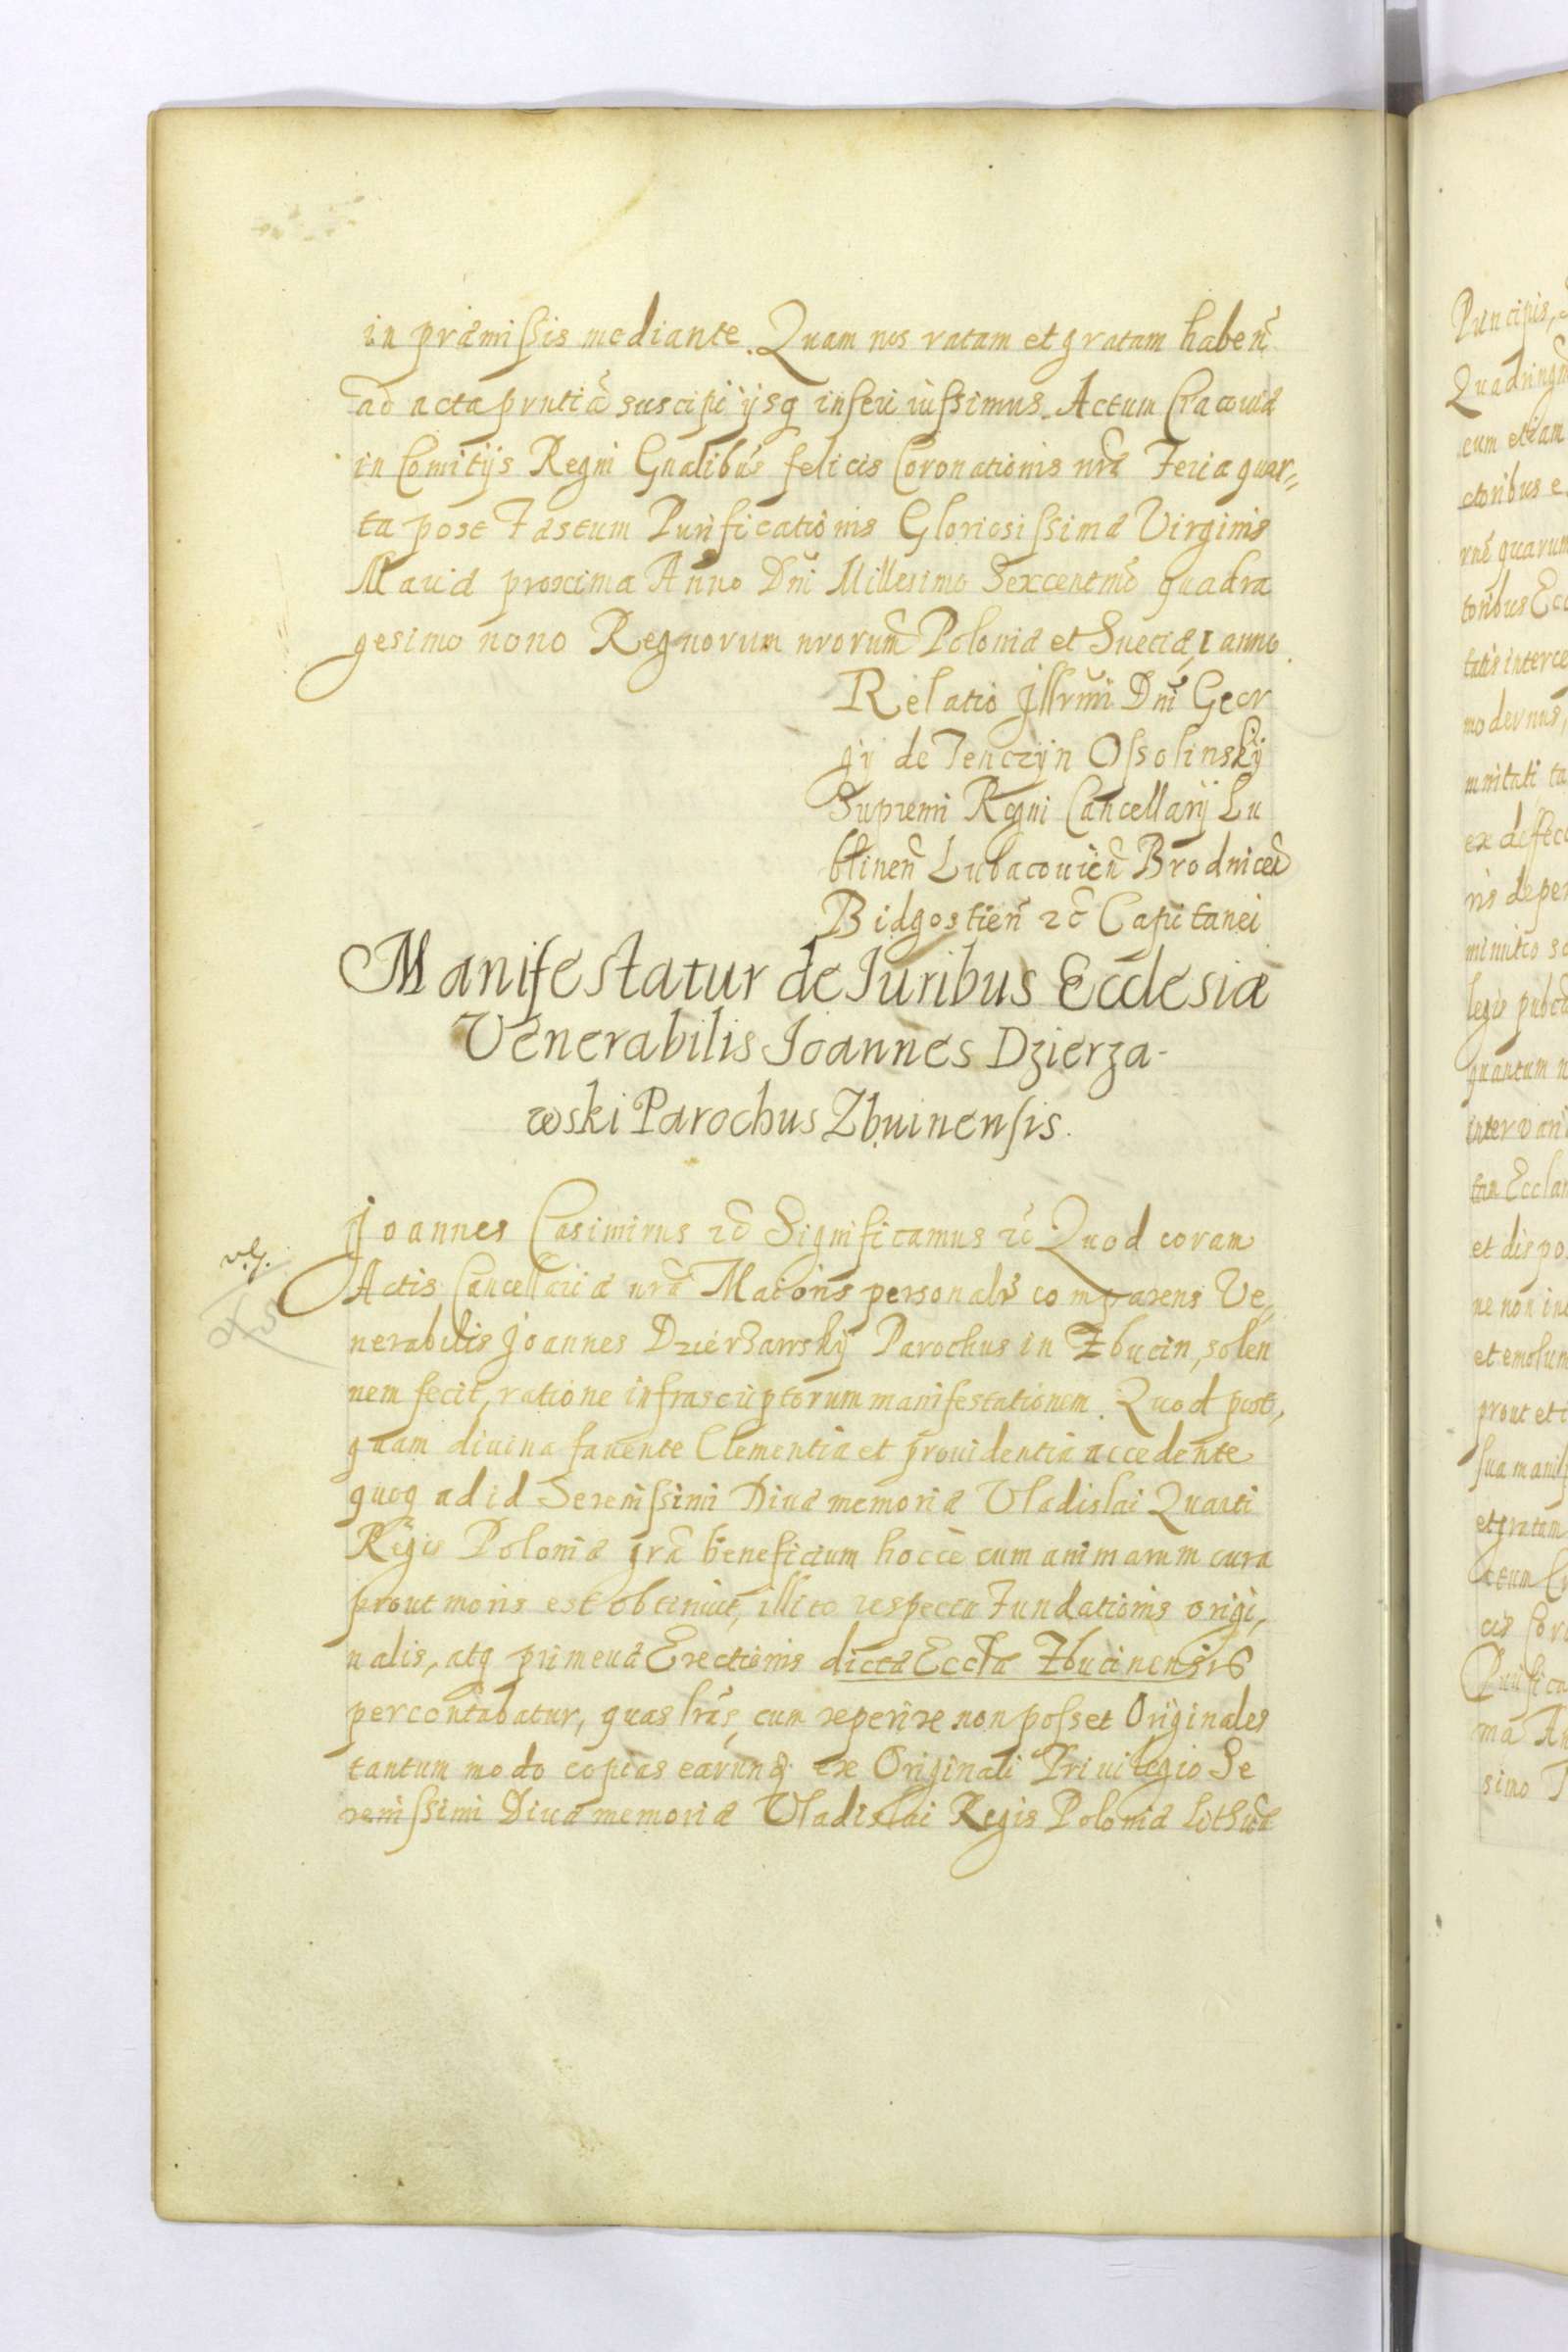 in præmissis mediante. Quam nos ratam et gratam haben̄
ad acta prntiā suscipi ijsq̃ inseri iussimus. Actum Cracouiæ
in Comitijs Regni Gnalibus felicis Coronationis nræ Feria quar=
ta post Fæstum Purificationis Gloriosissimæ Virginis
Mariæ proxima Anno Dni Millesimo Sexcentmo quadra
gesimo nono Regnorum nrorum Poloniæ et Sueciæ, I anno.
Relatio Jllrmi Dni Geor
gij de Tenczyn Ossolinskÿ
Supremi Regni Cancellarij Lu
blinen̄ Lubacouien̄ Brodnicen̄
Bidgostien̄ &c̃ Capitanei
Manifestatur de Iuribus Ecclesiæ
Venerabilis Joannes Dzierza-
wski Parochus Zbuinensis.
Joannes Casimirus &c̃ Significamus &c̃ Quod coram
Actis Cancellariæ nræ Maioris personalr̃ comparens Ve=
nerabilis Joannes Dzierżawskÿ Parochus in Zbucin, solen
nem fecit, ratione infrascriptorum manifestationem. Quod post,
quam diuina fauente Clementia et prouidentia accedente
quoq̃ ad id Serenissimi Diuæ memoriæ Vladislai Quarti
Regis Poloniæ grã beneficium hocce cum animarum cura
prout moris est obtinuit, illico respectu Fundationis origi,
nalis, atq̃ primeuæ Erectionis dictæ Eccłæ Zbucinensis
percontabatur, quas lrãs, cum reperire non posset Originales
tantum modo copias earund̃ ex Originali Priuilegio Se
renissimi Diuæ memoriæ Vladislai Regis Poloniæ Lithuæ